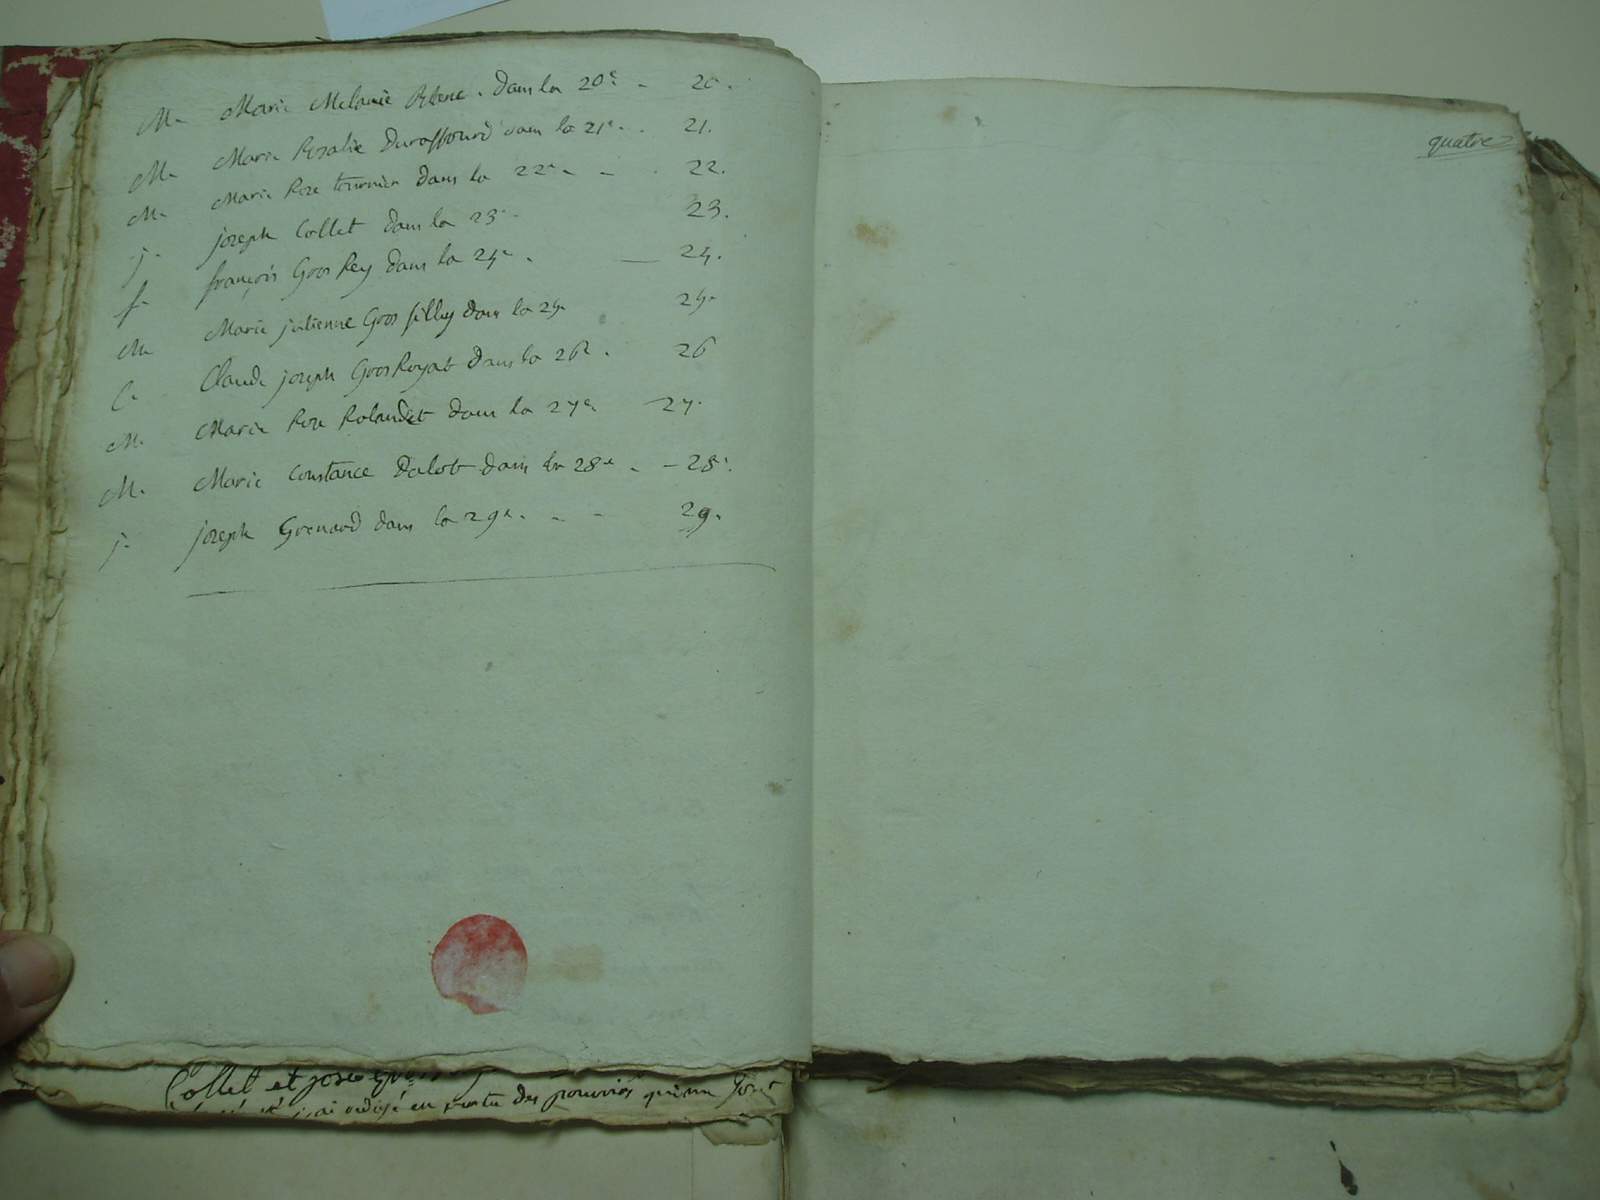 M. Marie Melanie dans la 20e - 20.
M. Marie Rosalie Duraffourd dans la 21e. . 21.
M. Marie Roze tournier dans la 22e - . 22.
j. joseph Collet dans la 23. 23.
f. françois Gros Rey dans la 24e . — 24.
M. Marie julienne Gros filley dans la 25. 25.
C. Claude joseph Gros Royat dans la 26e . 26
M. Marie Roze Rolandet dans la 27e 27.
M. Marie Constance Dalob dans la 28e . - 28.
j. joseph Grenard dans la 29e. - - 29.
quatre
Collet et
j'ai redigé en vertu des pouvoirs qui me sont